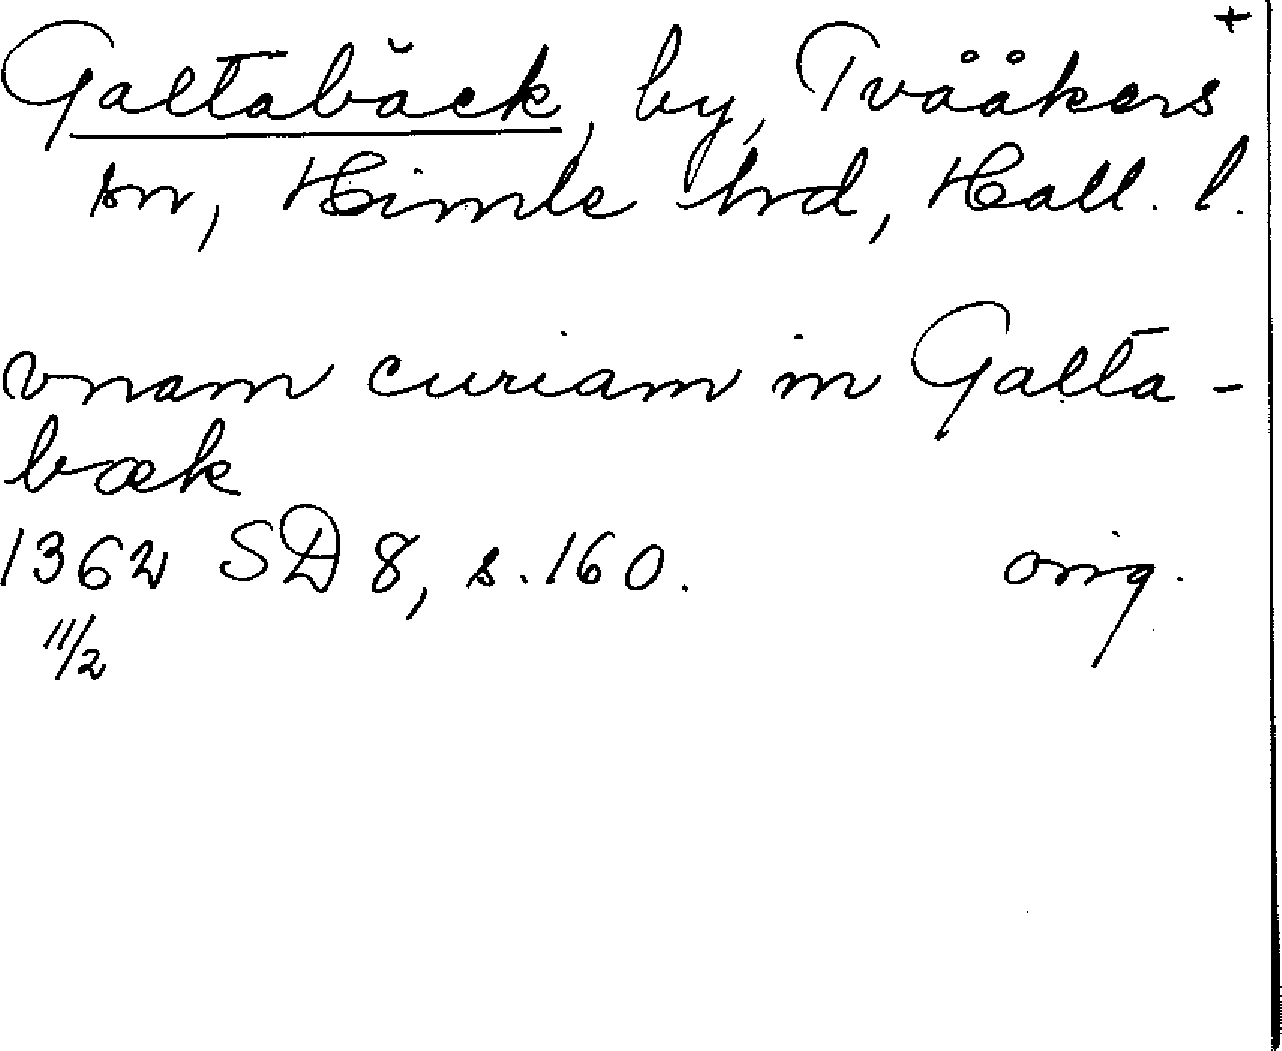 +
Galtabäck, by, Tvååkers
sn, Himle hrd, Hall. l.
vnam curiam in Galta-
bæk
1362 SD 8, s. 160. orig.
11/2